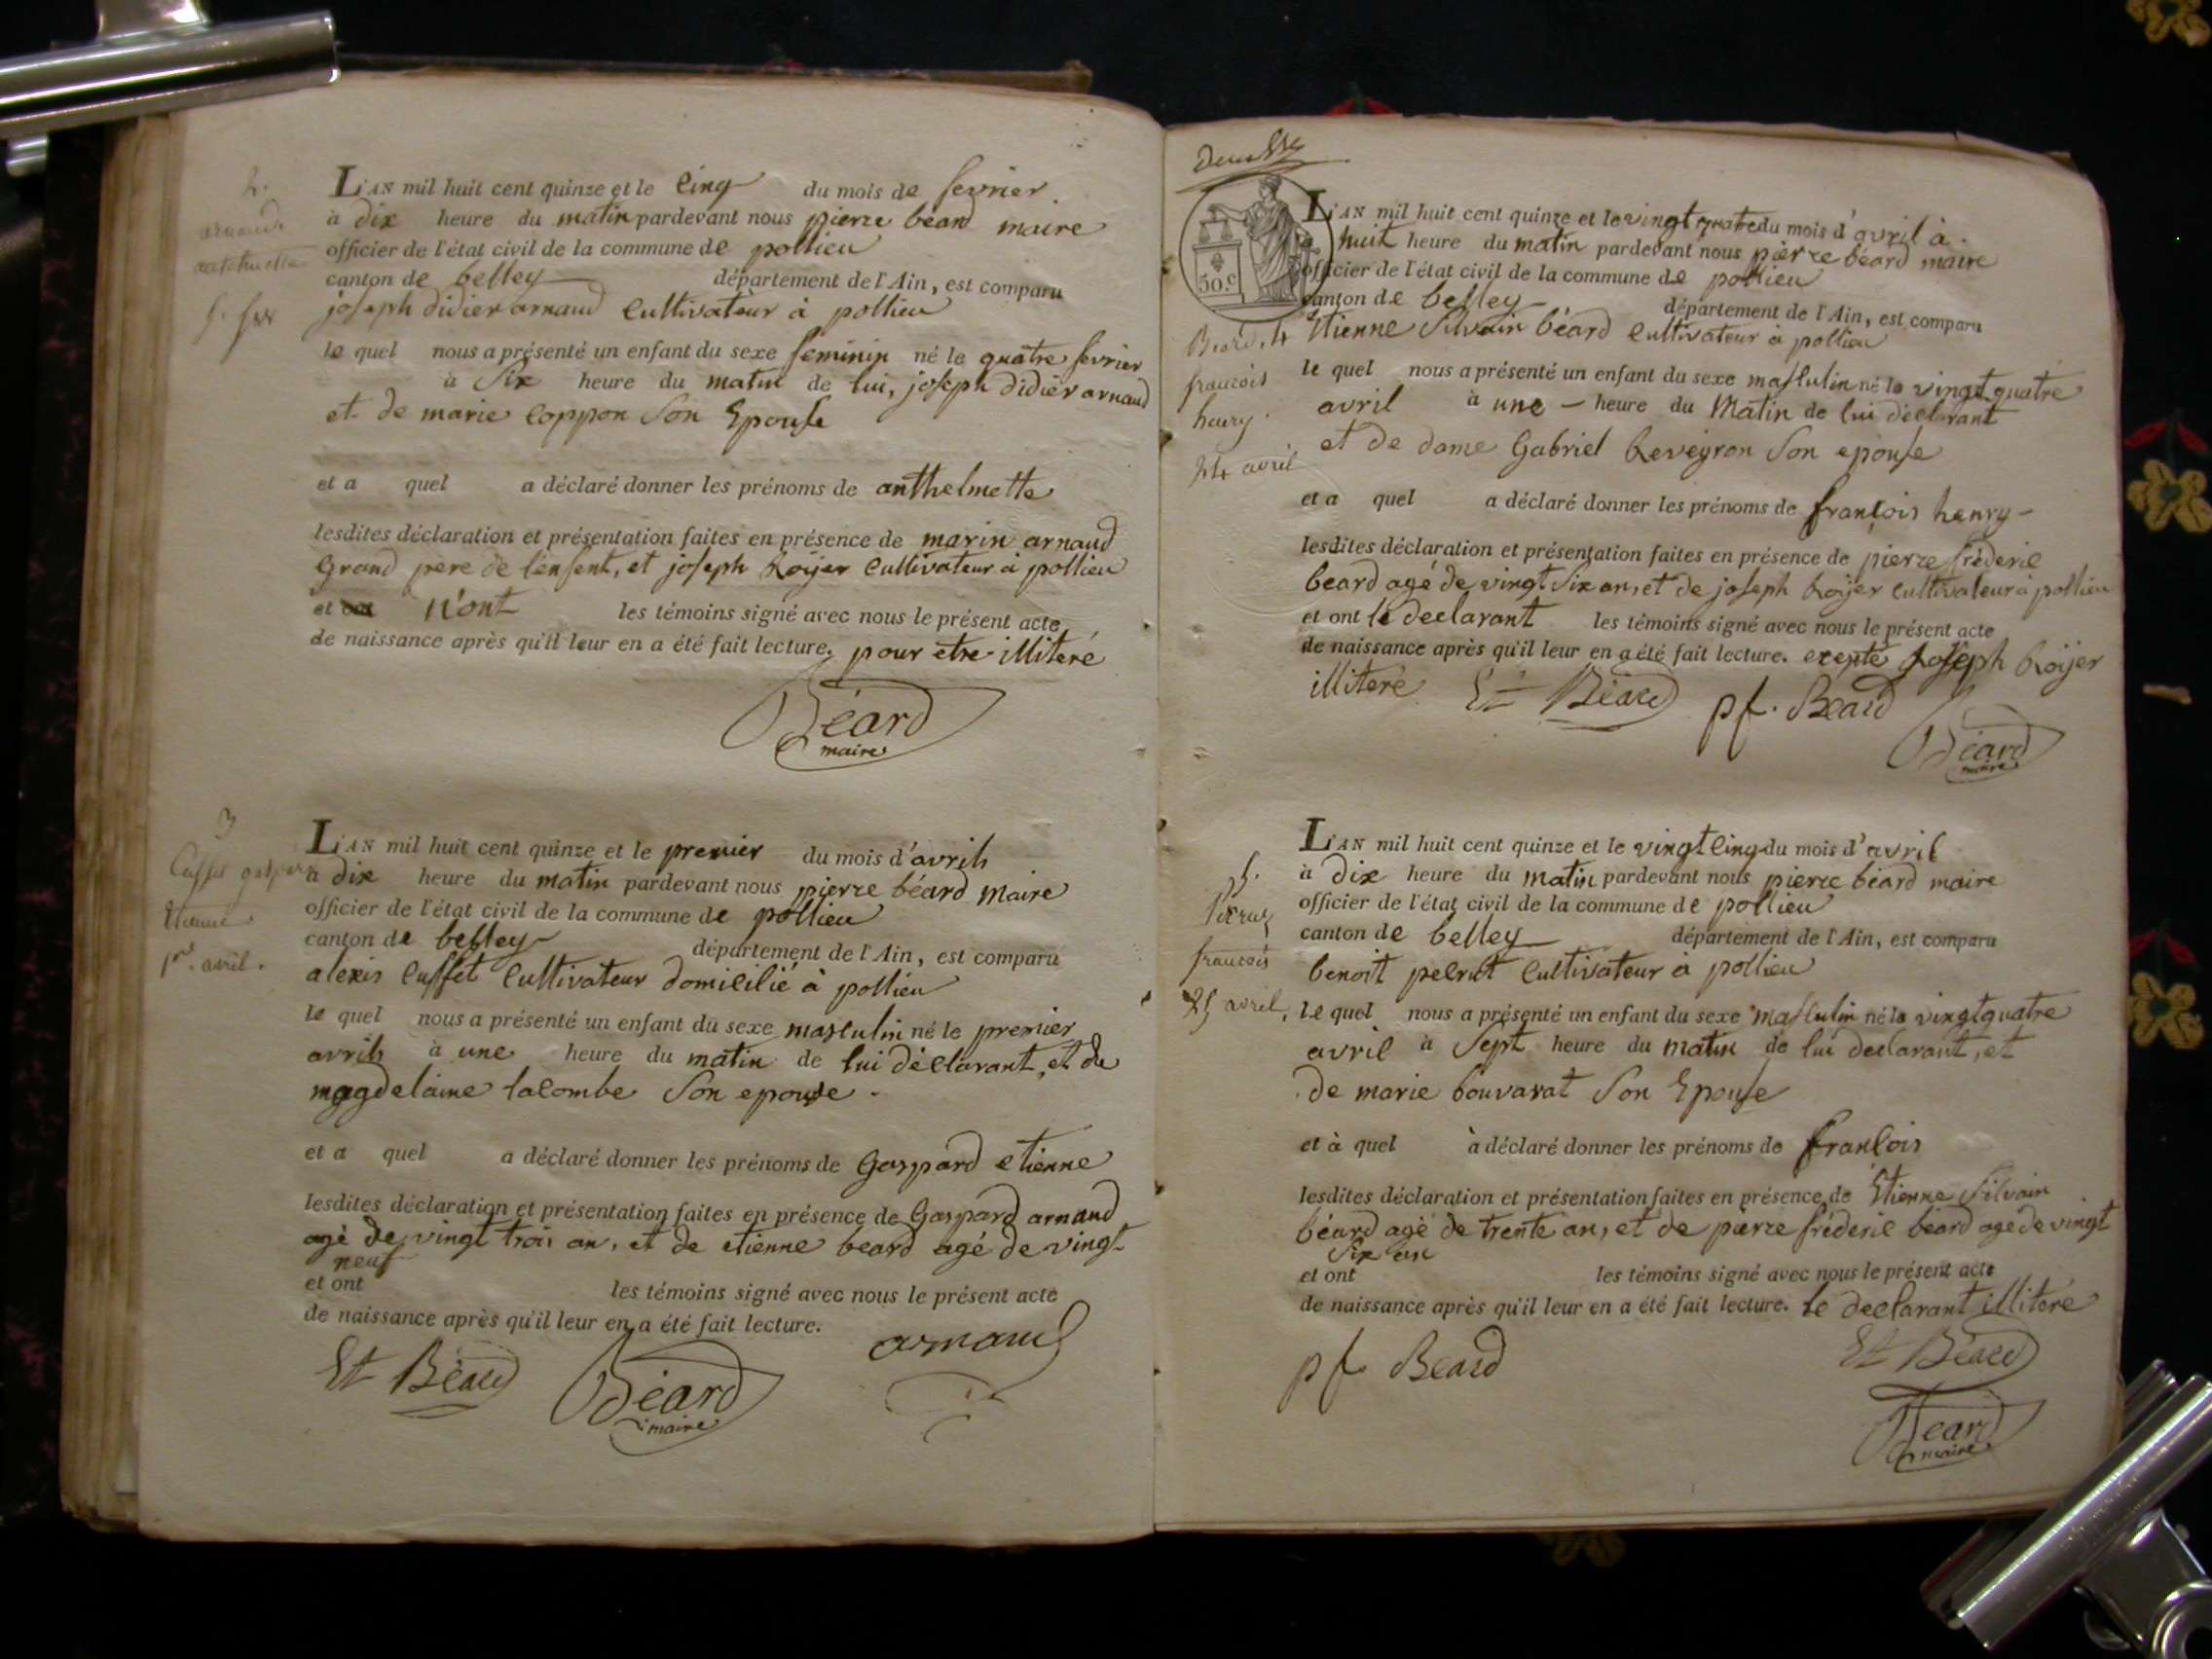 2.
arnaud
anthelmette
5. fer
L'AN mil huit cent quinze et le cinq du mois de fevrier
à dix heure du matin pardevant nous pierre béard maire
officier de l'état civil de la commune de pollieu
canton de belley département de l'Ain, est comparu
joseph didier arnaud cultivateur à pollieu
le quel nous a présenté un enfant du sexe feminin né le quatre fevrier
à six heure du matin de lui, joseph didier arnaud
et de marie coppon son Epouse
et a quel a déclaré donner les prénoms de anthelmette
lesdites déclaration et présentation faites en présence de marin arnaud
Grand pere de l'enfent, et joseph Roijer cultivateur à pollieu
et n'ont les témoins signé avec nous le présent acte
de naissance après qu'il leur en a été fait lecture. pour etre illiteré
Béard
maire
3
Cusset gaspar
Etienne
1er. avril.
L'AN mil huit cent quinze et le premier du mois d'avril
à dix heure du matin pardevant nous pierre béard maire
officier de l'état civil de la commune de pollieu
canton de belley département de l'Ain, est comparu
alexis cusset cultivateur domicilié à pollieu
le quel nous a présenté un enfant du sexe masculin né le premier
avril à une heure du matin de lui déclarant, et de
magdelaine lacombe son epouse.
et a quel a déclaré donner les prénoms de Gaspard etienne
lesdites déclaration et présentation faites en présence de Gaspard arnaud
agé de vingt trois an, et de etienne beard agé de vingt
neuf
et ont les témoins signé avec nous le présent acte
de naissance après qu'il leur en a été fait lecture.
arnaud
Et Béard Béard
maire
50.c
Beard, 4
francois
henry.
24 avril
L'AN mil huit cent quinze et le vingt quatre du mois d'avril à
huit heure du matin pardevant nous pierre béard maire
officier de l'état civil de la commune de pollieu
canton de belley département de l'Ain, est comparu
Etienne Silvain béard cultivateur à pollieu
le quel nous a présenté un enfant du sexe masculin né le vingt quatre
avril à une heure du Matin de lui déclarant
et de dame Gabriel Reveyron son epouse
et a quel a déclaré donner les prénoms de françois henry
lesdites déclaration et présentation faites en présence de pierre fréderic
beard agé de vingt six an, et de joseph Roijer cultivateur à pollieu
et ont le declarant les témoins signé avec nous le présent acte
de naissance après qu'il leur en a été fait lecture. excepté Joseph Roijer
illiteré Et Béard pf. Beard
Béard
maire
5.
francois
25 avril,
L'AN mil huit cent quinze et le vingt cinq du mois d'avril
à dix heure du matin pardevant nous pierre béard maire
officier de l'état civil de la commune de pollieu
canton de belley département de l'Ain, est comparu
benoit pelrut cultivateur à pollieu
le quel nous a présenté un enfant du sexe masculin né le vingt quatre
avril à sept heure du matin de lui declarant, et
de marie bouvarat son Epouse
et à quel à déclaré donner les prénoms de françois
lesdites déclaration et présentation faites en présence de Etienne Silvain
béard agé de trente an, et de pierre fréderic béard agé de vingt
six an
et ont les témoins signé avec nous le présent acte
de naissance après qu'il leur en a été fait lecture. le declarant illiteré
pf Beard Et Béard
Béard
maire